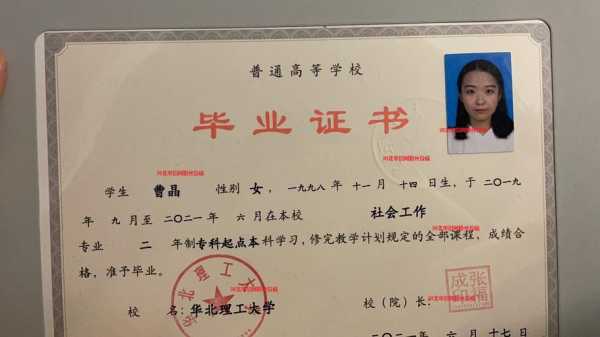 普通高等学校
毕业证书
学生 曹晶 性别 女，一九九八年 十一月 十四日生，于二〇一九
年 九月至二〇二一年 六月在本校 社会工作
专业 二 年制专科起点本科学习，修完教学计划规定的全部课程，成绩合
格，准予毕业。
华北理工大
张福成印
校 名：华北理工大学 校（院）长：
二〇二一年 六月十七日